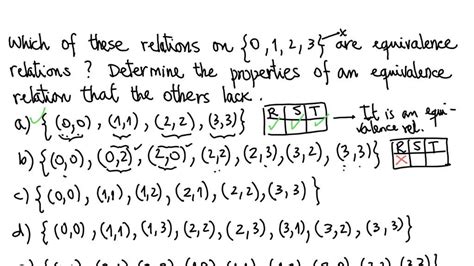 Which of these relations on {0,1,2,3} x are equivalence
relations ? Determine the properties of an equivalence
relation that the others lack.
a) ✓ { (0,0) , (1,1) , (2,2) , (3,3) } R S T ✓ ✓ ✓ → It is an equi-
valence rel.
b) { (0,0) , (0,2) , (2,0) , (2,2) , (2,3) , (3,2) , (3,3) } R S T ×
c) { (0,0) , (1,1) , (1,2) , (2,1) , (2,2) , (3,3) }
d) { (0,0) , (1,1) , (1,3) , (2,2) , (2,3) , (3,1) , (3,2) , (3,3) }